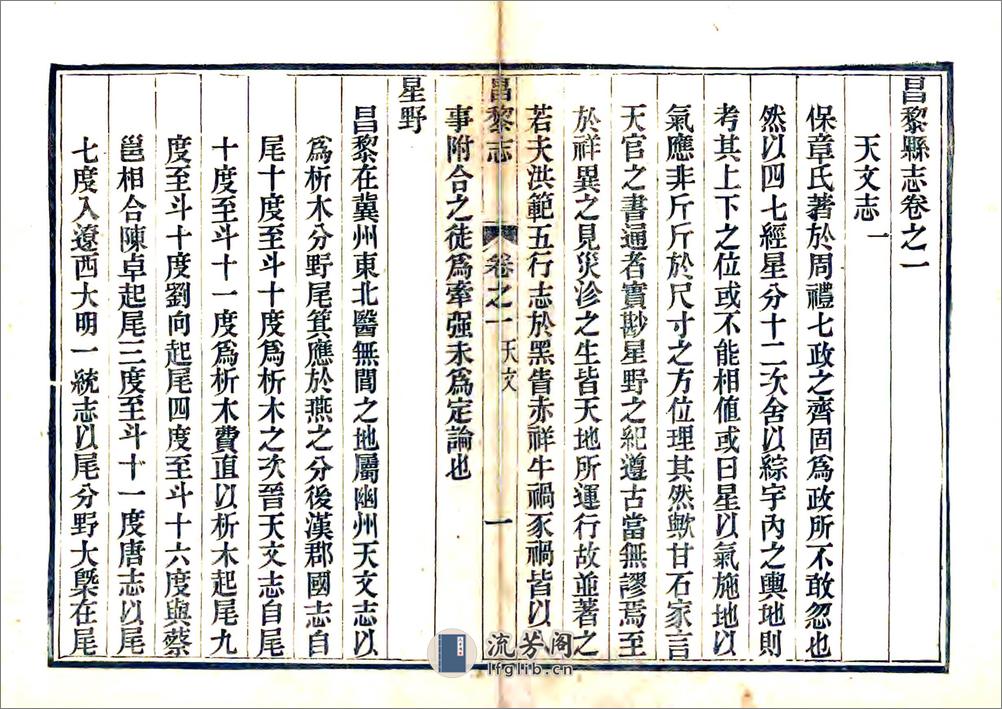 昌黎縣志卷之一
天文志一
保章氏著於周禮七政之齊固爲政所不敢忽也
然以四七經星分十二次舍以綜宇內之輿地則
考其上下之位或不能相值或曰星以氣施地以
氣應非斤斤於尺寸之方位理其然歟甘石家言
天官之書通者實尠星野之紀遵古當無謬焉至
於祥異之見災沴之生皆天地所運行故並著之
若夫洪範五行志於黑眚赤祥牛禍豕禍皆以
事附合之徒爲牽强未爲定論也
昌黎志 卷之一 天文 一
星野
昌黎在冀州東北醫無閭之地屬幽州天文志以
爲析木分野尾箕應於燕之分後漢郡國志自
尾十度至斗十度爲析木之次晉天文志自尾
十度至斗十一度爲析木費直以析木起尾九
度至斗十度劉向起尾四度至斗十六度與蔡
邕相合陳卓起尾三度至斗十一度唐志以尾
七度入遼西大明一統志以尾分野大槩在尾
流芳阁
lfglib.cn